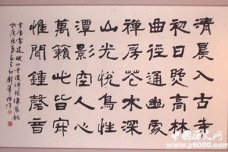 清晨入古寺
初日照高林
曲徑通幽處
禪房花木深
山光悅鳥性
潭影空人心
萬籟此皆寂
惟聞鐘磬音
中国历史网